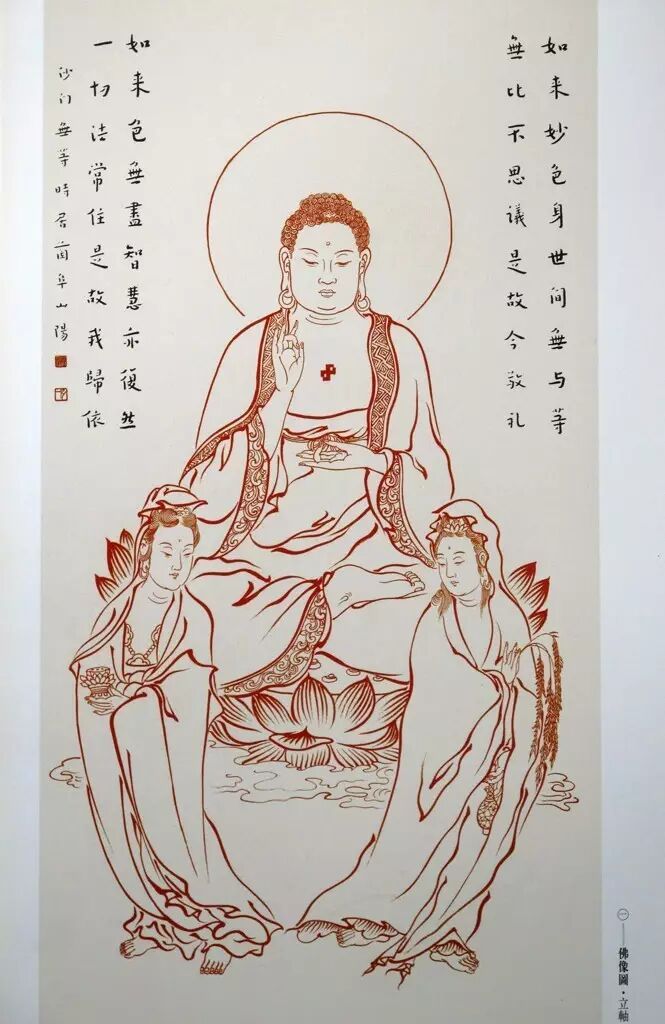 如来妙色身世间無与等
無比不思議是故今敬礼
如来色無盡智慧亦復然
一切法常住是故我歸依
沙门無等時居阜山陽
㊀——佛像圖·立軸